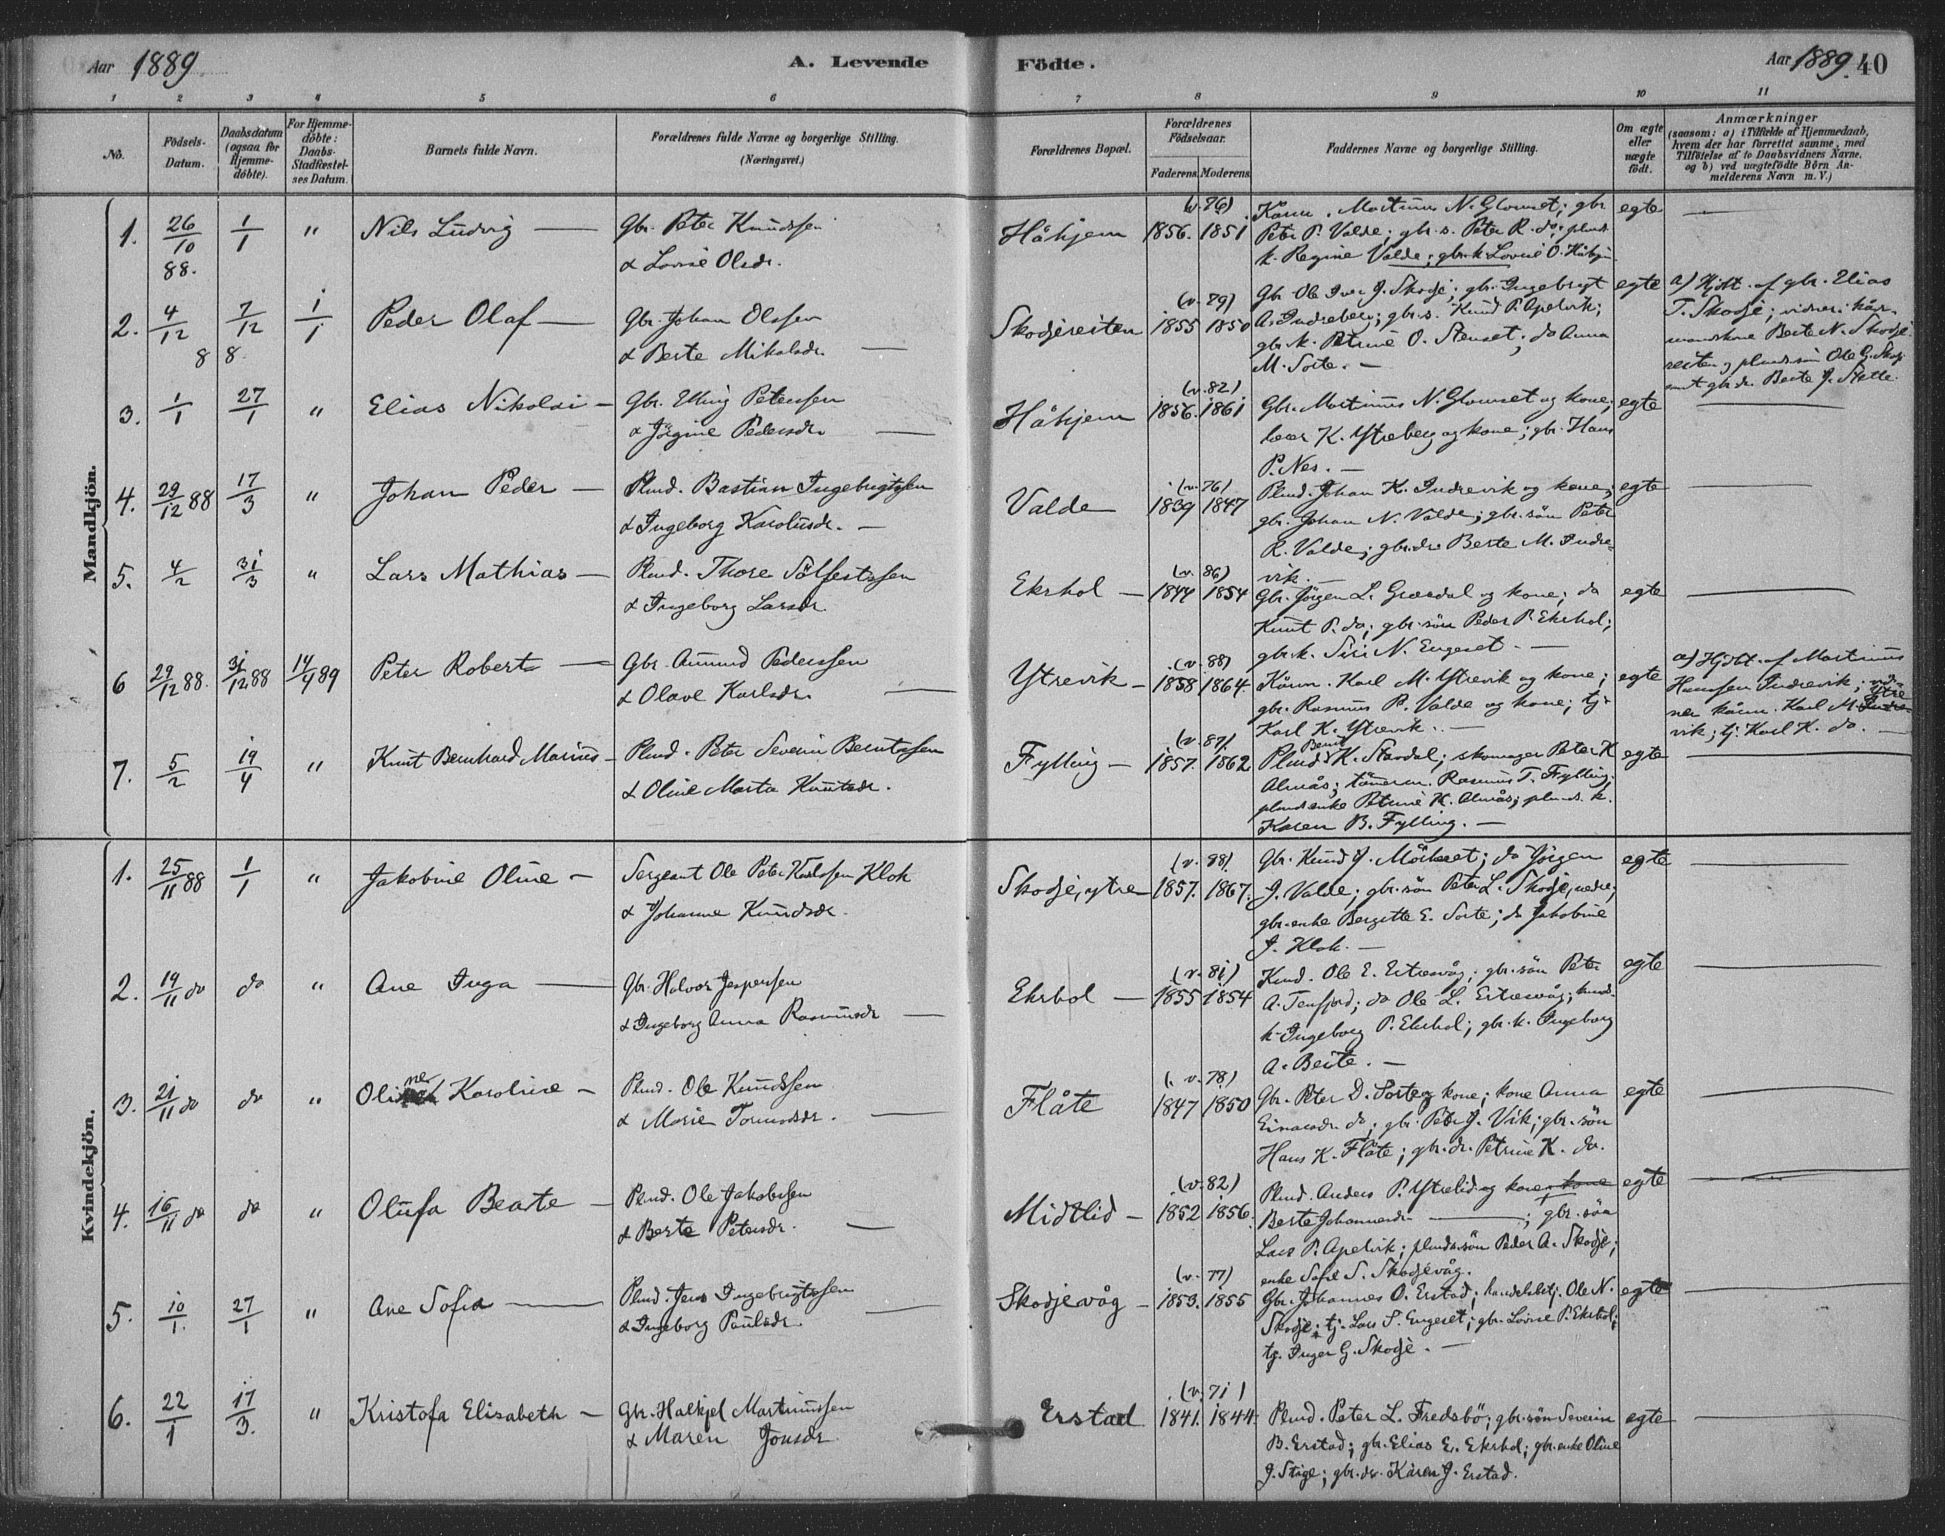 Aar 1889. A. Levende Födte. Aar 1889. 40
1 2 3 4 5 6 7 8 9 10 11
No. Födsels-Datum. Daabsdatum (ogsaa for Hjemme-döbte). For Hjemme-döbte: Daabs-Stadfæstel-ses Datum. Barnets fulde Navn. Forældrenes fulde Navne og borgerlige Stilling. (Næringsvei.) Forældrenes Bopæl. Forældrenes Födselsaar. Faderens. Moderens. Faddernes Navne og borgerlige Stilling. Om ægte eller uægte födt. Anmærkninger (saasom: a) i Tilfælde af Hjemmedaab, hvem der har forrettet samme, med Tilföielse af to Daabsvidners Navne, og b) ved uægtefödte Börn An-melderens Navn m. V.)
Mandkjön.
1. 26/10 88. 1/1 " Nils Ludvig — Gbr. Peter Knudssen
& Lovise Olsdr.
Håhjem (v. 76) 1856. 1851.
Kårm. Martinus N. Glomset; gbr
Peter P. Valde; gbr.s. Peter R. do; plmds
k. Regine Valde; gbr.k. Lovise O. Håhjem
egte —
2. 4/12 88 7/12 88. 1/1 Peder Olaf — Gbr. Johan Olssen
& Berte Mikalsdr. —
Skodjereiten (v. 79) 1855 1850
Gbr. Ole Iver J. Skodje; gbr. Ingebrigt
A. Indreberg; gbr.s. Knud P. Apelvik;
gbr.k. Petrine O. Stenset; do Anna
M. Sorte. —
egte
a) Hjdbt. af gbr. Elias
T. Skodje; vidner: kår-
mandskone Berte N. Skodje
reiten og plmdssön Ole G. Skodje
samt gbr.dr. Berte J. Stette.
3. 1/1 27/1 " Elias Nikolai — Gbr. Elling Peterssen
& Jörgine Pedersdr. —
Håhjem (v. 82) 1856. 1861
Gbr. Martinus N. Glomset og kone;
lærer K. Ytreberg og kone; gbr. Hans
P. Nes. —
egte —
4. 29/12 88 17/3 " Johan Peder — Plmd. Bastian Ingebrigtssen
& Ingeborg Karolusdr. —
Valde (v. 76) 1839 1847
Plmd. Johan K. Indrevik og kone;
gbr. Johan N. Valde; gbr.sön Peter
R. Valde; gbr.dr. Berte M. Indre-
vik. —
egte —
5. 4/2 31/3 " Lars Mathias — Plmd. Thore Sölfestssen
& Ingeborg Larsdr.
Ekrhol — (v. 86) 1844 1854
Gbr. Jörgen L. Græsdal og kone; do
Knut P. do; gbr.sön Peder P. Ekrhol;
gbr.k. Siri N. Engeset. —
egte —
6 29/12 88. 31/12 88 14/4 89 Peter Robert — Gbr. Amund Pederssen
& Olave Karlsdr. —
Ytrevik — (v. 88) 1858 1864.
Kårm. Karl M. Ytrevik og kone;
gbr. Rasmus P. Valde og kone; tj.
Karl K. Ytrevik. —
egte
a) Hjdbt. af Martinus
Hanssen Indrevik; vid-
ner kårm. Karl M. Ytre
vik; tj. Karl K. do. —
7. 5/2 19/4 " Knut Bernhard Marius — Plmd. Peter Severin Berntssen
& Oline Marta Knutsdr.
Fylling — (v. 87) 1857. 1862
Plmd Bernt K. Stavdal; skomager Peter K
Almås; tömrerm. Rasmus T. Fylling;
plmdsenke Petrine K. Almås; plmds. k.
Karen B. Fylling. —
egte —
Kvindekjön.
1. 25/11 88 1/1 " Jakobine Oline — Sergeant Ole Peter Karlssen Klok
& Johanne Knudsdr.
Skodje, ytre (v. 88) 1857. 1867.
Gbr. Knud J. Mörkeset; do Jörgen
J. Valde; gbr.sön Peter L. Skodje, nedre;
gbr.enke Bergitte E. Sorte; do Jakobine
J. Klok. —
egte —
2. 19/11 do do " Ane Inga — Gbr. Halvor Jesperssen
& Ingeborg Anna Rasmusdr —
Ekrhol — (v. 81) 1855 1854
Knud. Ole E. Ertesvåg; gbr.sön Peter
A. Tenfjord; do Ole L. Ertesvåg; kmds-
k. Ingeborg P. Ekrhol; gbr.k. Ingeborg
A. Beite. —
egte —
3. 21/11 do do " Oline Karoline — Plmd. Ole Knudssen
& Marie Tormodsdr. —
Flåte (v. 78) 1847 1850
Gbr. Peter D. Sorte og kone; kone Anna
Einarsdr. do; gbr. Peter J. Vik; gbr.sön
Hans K. Flåte; gbr.dr. Petrine K. do.
egte —
4. 16/11 do do " Olufa Beate — Plmd. Ole Jakobssen
& Berte Petersdr. —
Midtlid — (v. 82) 1852 1856.
Plmd. Anders P. Ytrelid og kone; kone
Berte Johannesdr. — ; gbr.sön
Lars P. Apelvik; plmdssön Peder A. Skodje;
enke Sofie S. Skodjevåg.
egte —
5. 10/1. 27/1 " Ane Sofia — Plmd. Jens Ingebrigtssen
& Ingeborg Paulsdr. —
Skodjevåg — (v. 77) 1853. 1855
Gbr. Johannes O. Erstad; handelsbtj. Ole N.
Skodje; tj. Lars S. Engeset; gbr. Lovise P. Ekrhol;
tj. Inger G. Skodje. —
egte —
6. 22/1 17/3. " Kristofa Elisabeth — Gbr. Halkjel Martinussen
& Maren Jonsdr.
Erstad (v. 71) 1841. 1844.
Plmd. Peter L. Fredsbö; gbr.sön Severin
B. Erstad; gbr. Elias E. Ekrhol; gbr.enke Oline
J. Stige; gbr.dr. Karen J. Erstad.
egte —